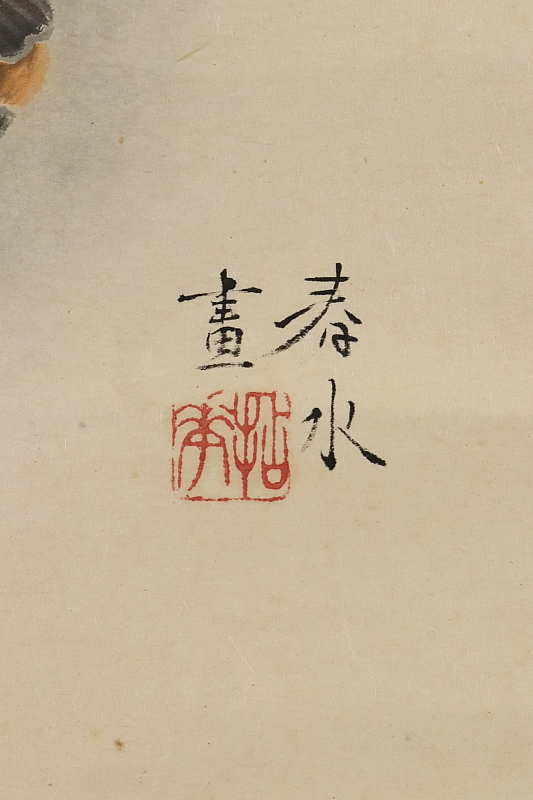 春水
畫